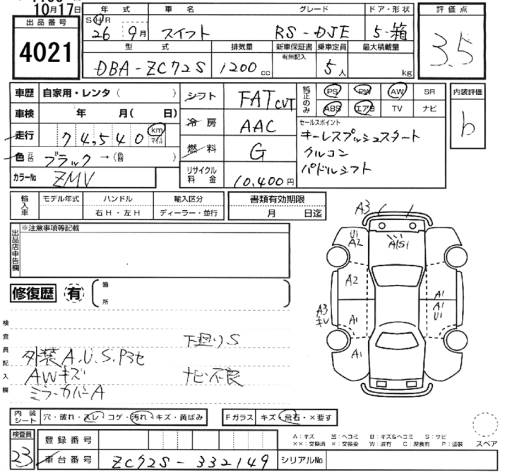 10月17日
出品番号
4021
年式 車名 グレード ドア・形状
S H R 26年 9月 スイフト RS-DJE 5・箱
型式 排気量 新車保証書 有無記入 乗車定員 最大積載量
DBA-ZC72S 1200cc 5人 kg
評価点
3.5
車歴 自家用・レンタ( )
車検 年 月( 日)
走行 74,540 km マイル
色 ブラック→( )
カラーNo ZMV
シフト FAT CVT
冷房 AAC
燃料 G
リサイクル料金 10,400円
純正のみ PS PW AW SR
ABS エアB TV ナビ
セールスポイント
キーレスプッシュスタート
クルコン
パドルシフト
内装評価
b
輸入車 モデル年式 ハンドル 輸入区分
右H・左H ディーラー・並行
書類有効期限
月 日迄
出品店申告欄 ※注意事項等記載
修復歴 有 箇所
検査員記入欄
下廻りS
外装A.U.S.Pあせ
AWキズ ナビ不良
ミラーカバーA
A3
U1
A2
A1S1
A2
A1
A3
キレ
A1
A1
U1
A1
内装シート 穴・破れ・スレ・コゲ・汚れ・キズ・黄ばみ
Fガラス キズ・飛石・×要す
検査員 23
登録番号
車台番号 ZC72S-332149
シリアルNo
A:キズ U:ヘコミ B:キズ&ヘコミ S:サビ
××:交換済 ×:交換要 W:波有 C:腐食有 P:塗装
スペア